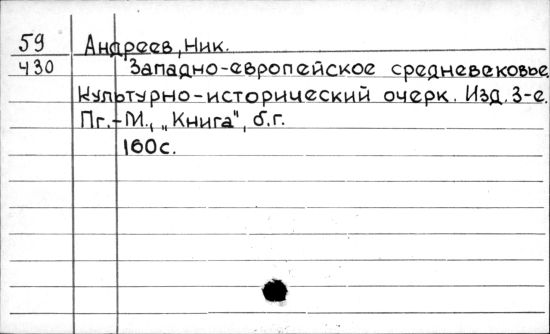 59 Андреев, Ник.
430 Западно-европейское средневековье.
Культурно-исторический очерк. Изд. 3-е.
Пг.-М., „Книга", б.г.
160с.